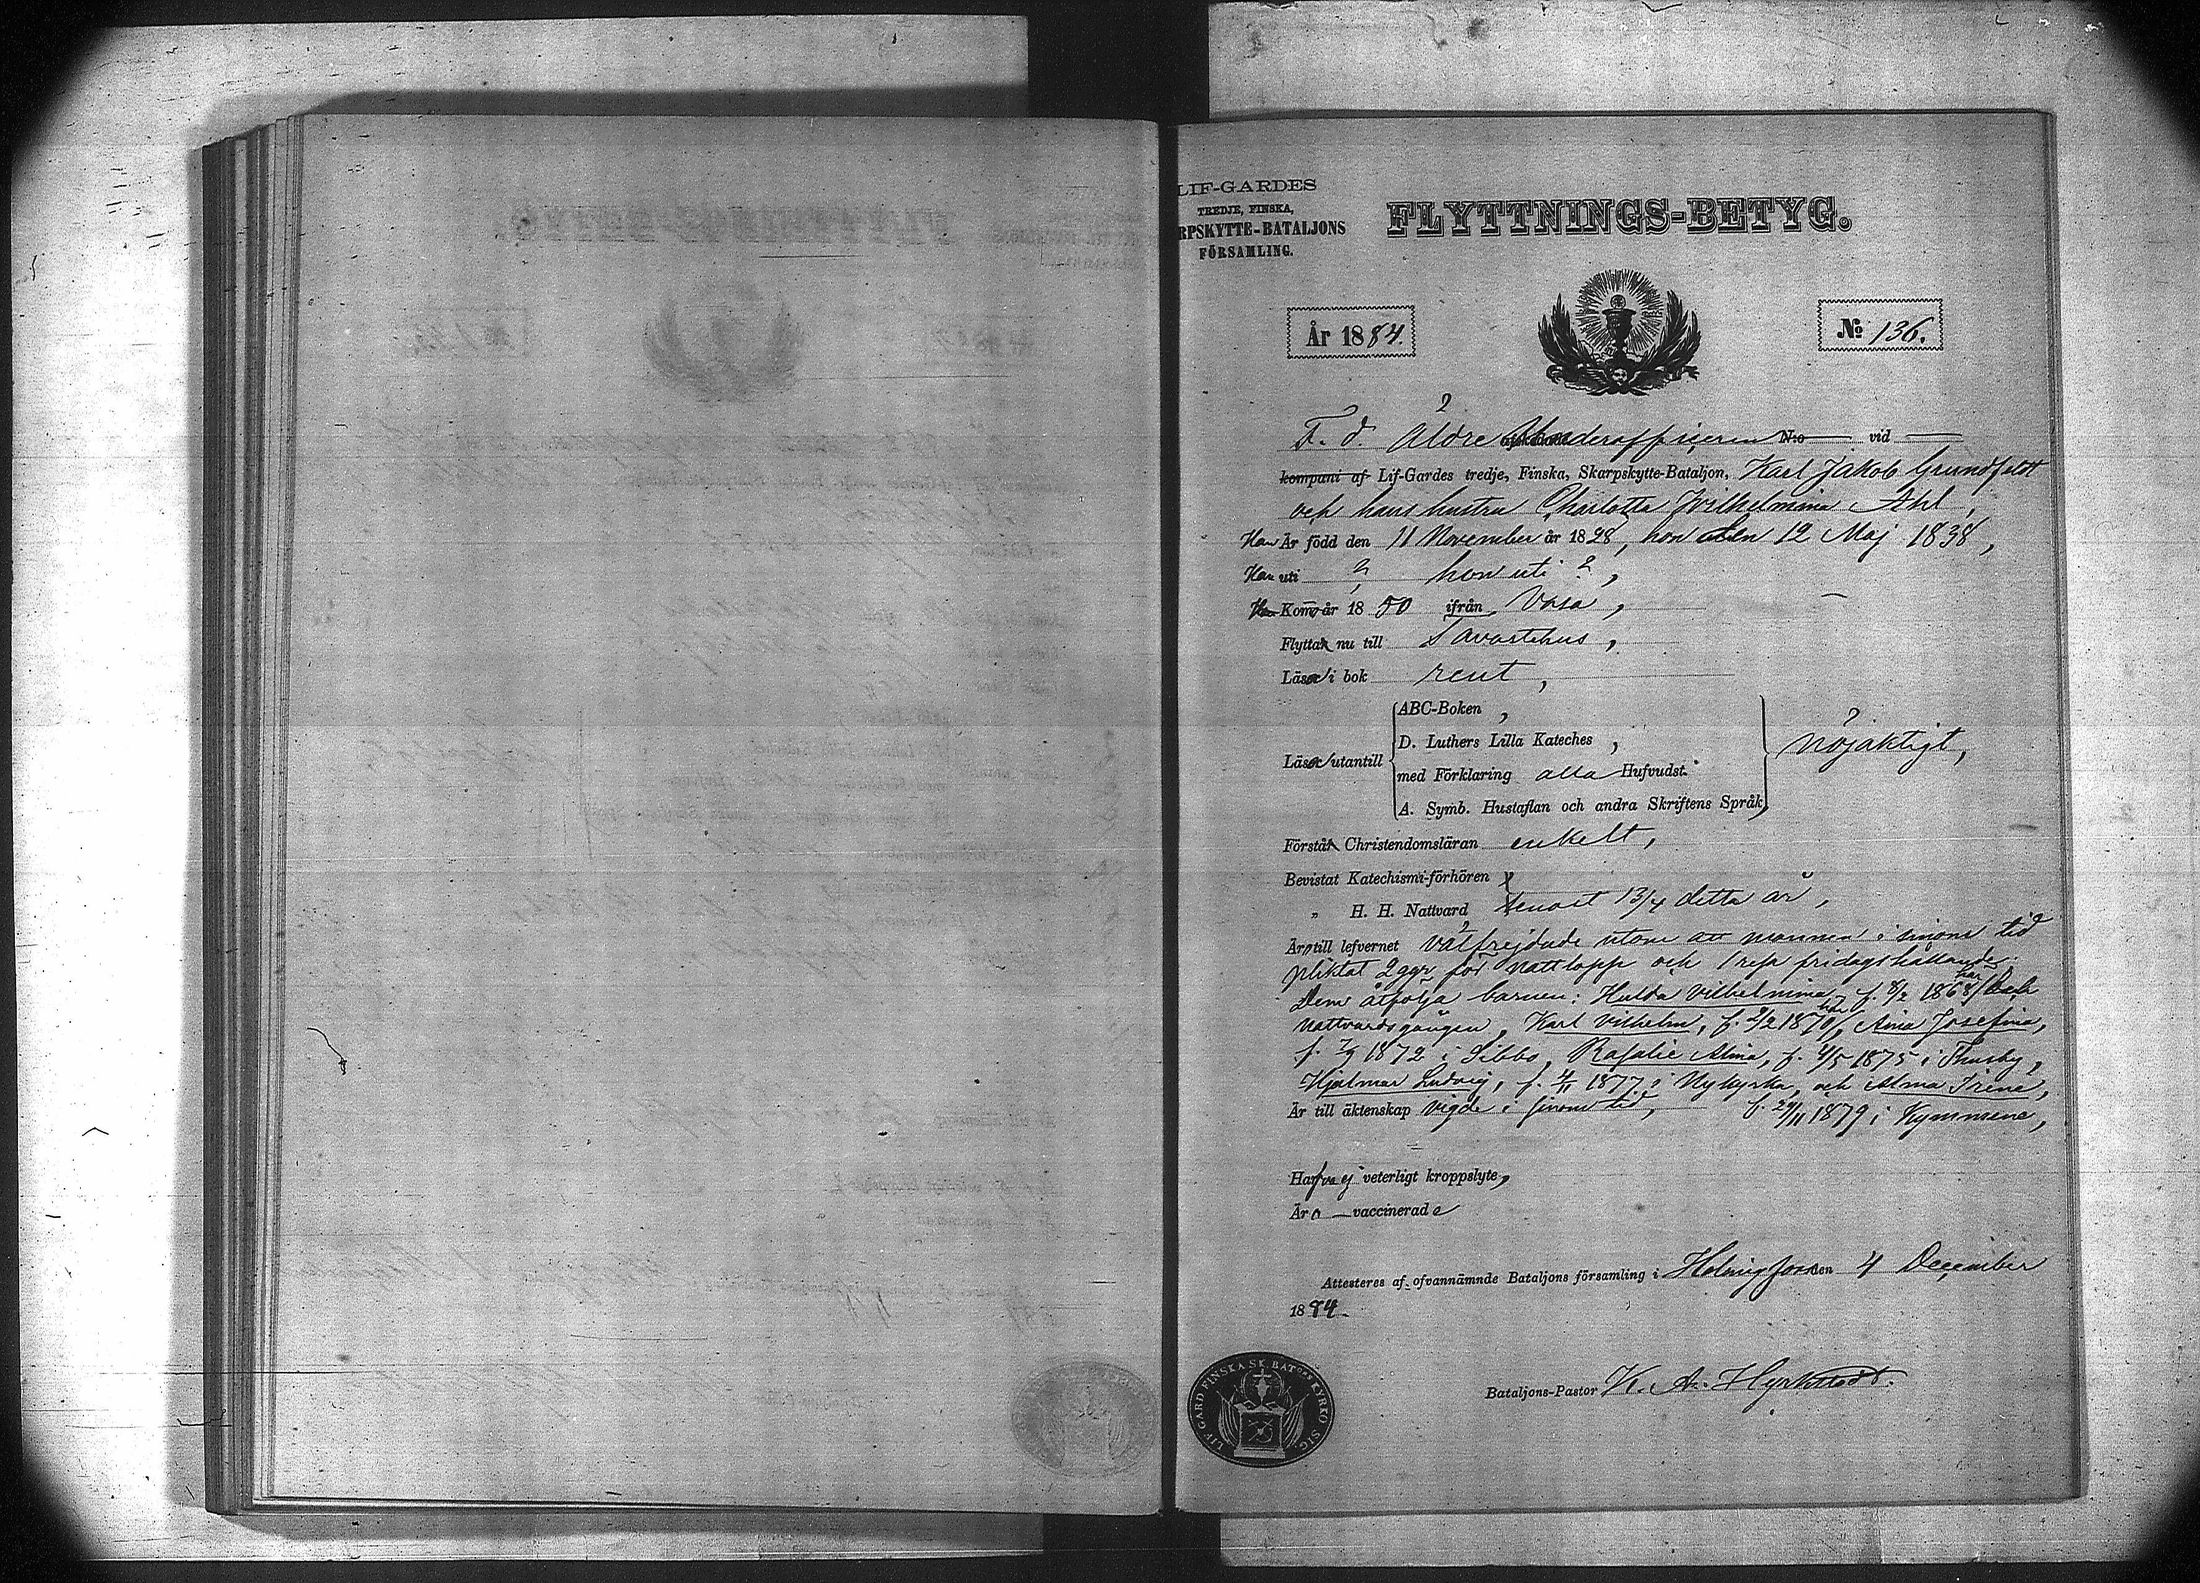 LIF-GARDES
TREDJE, FINSKA,
RPSKYTTE-BATALJONS
FÖRSAMLING.
FLYTTNINGS-BETYG.
År 1884.
№ 136.
F. d. Äldre Underofficeren N:o vid
kompani af Lif-Gardes tredje, Finska, Skarpskytte-Bataljon, Karl Jakob Grundfeldt
och hans hustru Charlotta Wilhelmina Ahl,
Han Är född den 11 November år 1828, hon den 12 Maj 1838,
Han uti ? hon uti ?,
Kommo år 1850 ifrån Vasa,
Flytta nu till Tavastehus,
Läsa i bok rent,
ABC-Boken,
D. Luthers Lilla Kateches,
Läsa utantill
med Förklaring alla Hufvudst.
A. Symb. Hustaflan och andra Skriftens Språk,
nöjaktigt,
Förstå Christendomsläran enkelt,
Bevistat Katechismi-förhören
" H. H. Nattvard senast 13/4 detta år,
Äro till lefvernet välfrejdade utom att mannen i sinom tid
pliktat 2 ggr för nattlopp och 1 resa fridagshållande.
Dem åtfölja barnen: Hulda Vilhelmina, f. 8/2 1868
nattvardsgången, Karl Vilhelm, f. 2/2 1870, Aina Josefina,
f. 7/9 1872 i Sibbo, Rosalie Alina, f. 4/5 1875 i Thusby,
Hjalmar Ludvig, f. 4/11 1877 i Nykyrka, och Alma Irene,
Är till äktenskap vigde i sinom tid, f. 29/11 1879 i Kymmene,
Hafva ej veterligt kroppslyte,
Äro vaccinerade
Attesteras af ofvannämnde Bataljons församling i Helsingfors den 4 December
1884.
Bataljons-Pastor K. A. Hyrkstedt.
LIF GARD FINSKA SK BAT:ns KYRKO SIG.